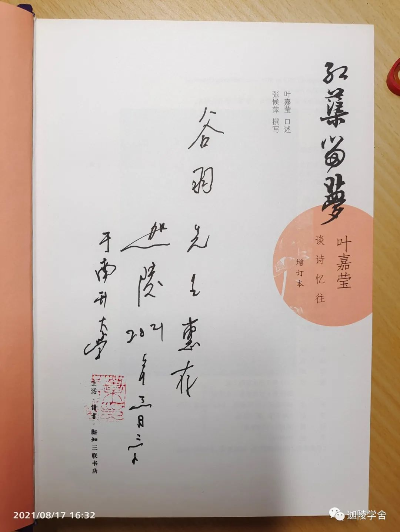 红蕖留梦
叶嘉莹 口述
张候萍 撰写
叶嘉莹
谈诗忆往
增订本
谷羽先生惠存
迦陵 2021年
于南开大学
生活·读书·新知三联书店
2021/08/17 16:32
迦陵学舍